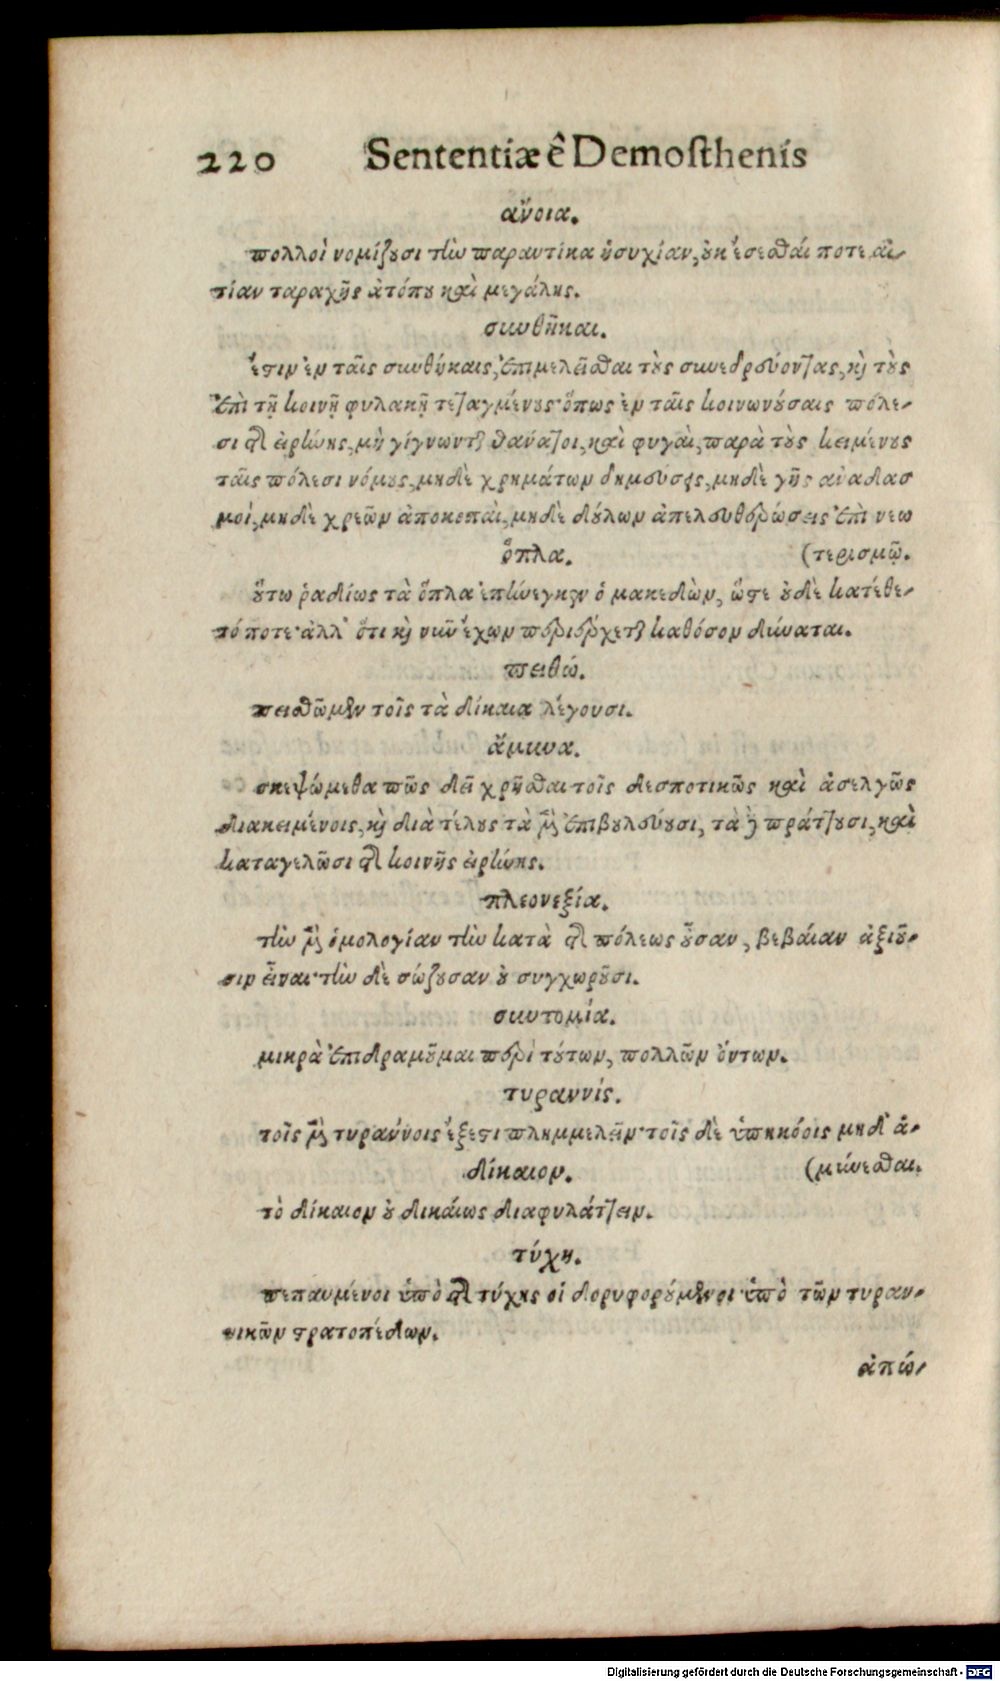 220 Sententiæ ê Demosthenis
ἄνοια.
πολλοὶ νομίζουσι τὴν παραυτίκα ἡσυχίαν, οὐκ ἔσεσθαί ποτε αἰ-
τίαν ταραχῆς ἀτόπου καὶ μεγάλης.
συνθῆκαι.
ἔστιν ἐν ταῖς συνθήκαις, ἐπιμελεῖσθαι τοὺς συνεδρεύοντας, καὶ τοὺς
ἐπὶ τῇ κοινῇ φυλακῇ τεταγμένους· ὅπως ἐν ταῖς κοινωνούσαις πόλε-
σι τῆς εἰρήνης, μὴ γίγνωνται θάνατοι, καὶ φυγαὶ, παρὰ τοὺς κειμένους
ταῖς πόλεσι νόμους, μηδὲ χρημάτων δημεύσεις, μηδὲ γῆς ἀναδασ
μοὶ, μηδὲ χρεῶν ἀποκοπαὶ, μηδὲ δούλων ἀπελευθερώσεις ἐπὶ νεω
ὅπλα. (τερισμῷ.
οὕτω ῥᾳδίως τὰ ὅπλα ἐπήνεγκεν ὁ μακεδὼν, ὥστε οὐδὲ κατέθε-
τό ποτε· ἀλλ' ἔτι καὶ νῦν ἔχων περιέρχεται καθόσον δύναται.
πειθώ.
πεισθῶμεν τοῖς τὰ δίκαια λέγουσι.
ἄμυνα.
σκεψώμεθα πῶς δεῖ χρῆσθαι τοῖς δεσποτικῶς καὶ ἀσελγῶς
διακειμένοις, καὶ διὰ τέλους τὰ μὲν ἐπιβουλεύουσι, τὰ δὲ πράττουσι, καὶ
καταγελῶσι τῆς κοινῆς εἰρήνης.
πλεονεξία.
τὴν μὲν ὁμολογίαν τὴν κατὰ τῆς πόλεως οὖσαν, βεβαίαν ἀξιοῦ-
σιν εἶναι· τὴν δὲ σώζουσαν οὐ συγχωροῦσι.
συντομία.
μικρὰ ἐπιδραμοῦμαι περὶ τούτων, πολλῶν ὄντων.
τυραννίς.
τοῖς μὲν τυράννοις ἔξεστι πλημμελεῖν· τοῖς δὲ ὑπηκόοις μηδ' ἀ-
δίκαιον. (μύνεσθαι.
τὸ δίκαιον οὐ δικαίως διαφυλάττειν.
τύχη.
πεπαυμένοι ὑπὸ τῆς τύχης οἱ δορυφορούμενοι ὑπὸ τῶν τυραν-
νικῶν στρατοπέδων.
ἀπώ-
Digitalisierung gefördert durch die Deutsche Forschungsgemeinschaft - DFG